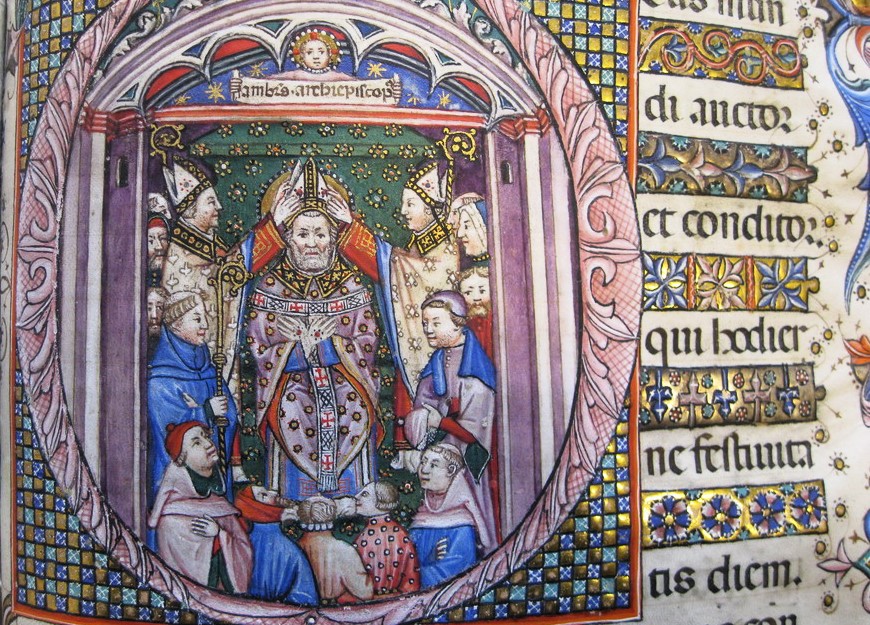 ambr̃s archiepiscopꝰ
eus mun
di auctor
et conditor
qui hodier
ne festiuita
tis diem.